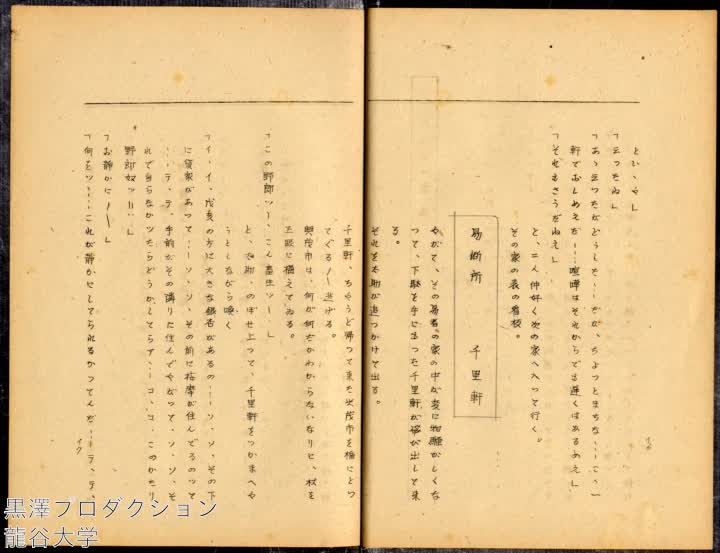 とい、や」
「云つたね」
「あゝ云つたがどうした……だが、ちよつとまちな……こゝ一
軒でおしめえだ……喧嘩はそれからでも遅くはあるめえ」
「それもさうだねえ」
と、二人仲好く次の家へ入つて行く。
その家の表の看板。
易断所　千里軒
やがて、その易者の家の中が変に物騒がしくな
つて、下駄を手にもつた千里軒が飛び出して来
る。
それを太助が追つかけて出る。
千里軒、ちやうど帰つて来た出茂市を楯にとつ
てぐる〳〵逃げる。
茂市は、何が何だかわからないなりに、杖を
正眼に構えてゐる。
「この野郎ツ〳〵、こん畜生ツ〳〵」
と、太助、のぼせ上つて、千里軒をつかまへや
うとしながら喚く
「イ・イ、戌亥の方に大きな銀杏があるの……ソ、ソ、その下
に貸家があつて……ソ、ソ、その前に按摩が住んでるのツて
……テ、テ、手前がその隣りに住んでやがつて、ソ、ソ、そ
れで当らなかツたらどうかしてらア、……コ、コ、このかたり
野郎奴ツ……」
「お静かに〳〵」
「何をツ……これが静かにしてられるかつてんだ……テ、テ、
イク
黒澤プロダクション
龍谷大学